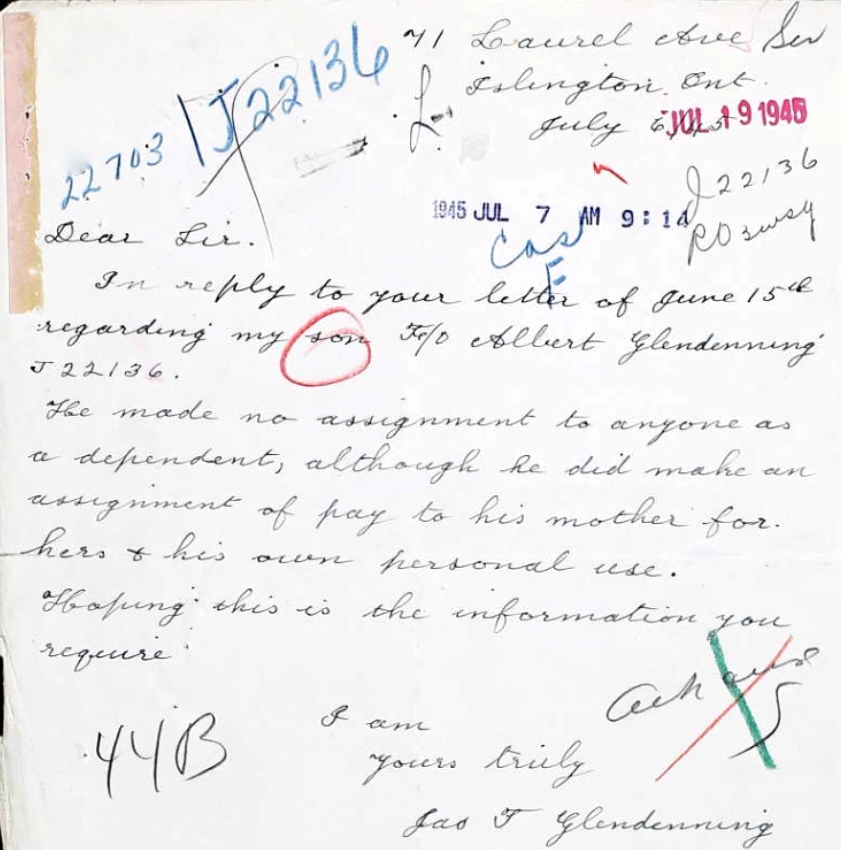 71 Laurel Ave
Islington, Ont.
July 6, 45
JUL 19 1945
J22136
22703
L
J22136
1945 JUL 7 AM 9:14
Cas
E
Dear Sir.
In reply to your letter of June 15th
regarding my son F/O Albert Glendenning
J22136.
He made no assignment to anyone as
a dependent, although he did make an
assignment of pay to his mother for.
hers & his own personal use.
Hoping this is the information you
require
I am
yours truly
Jas T Glendenning
44B
5